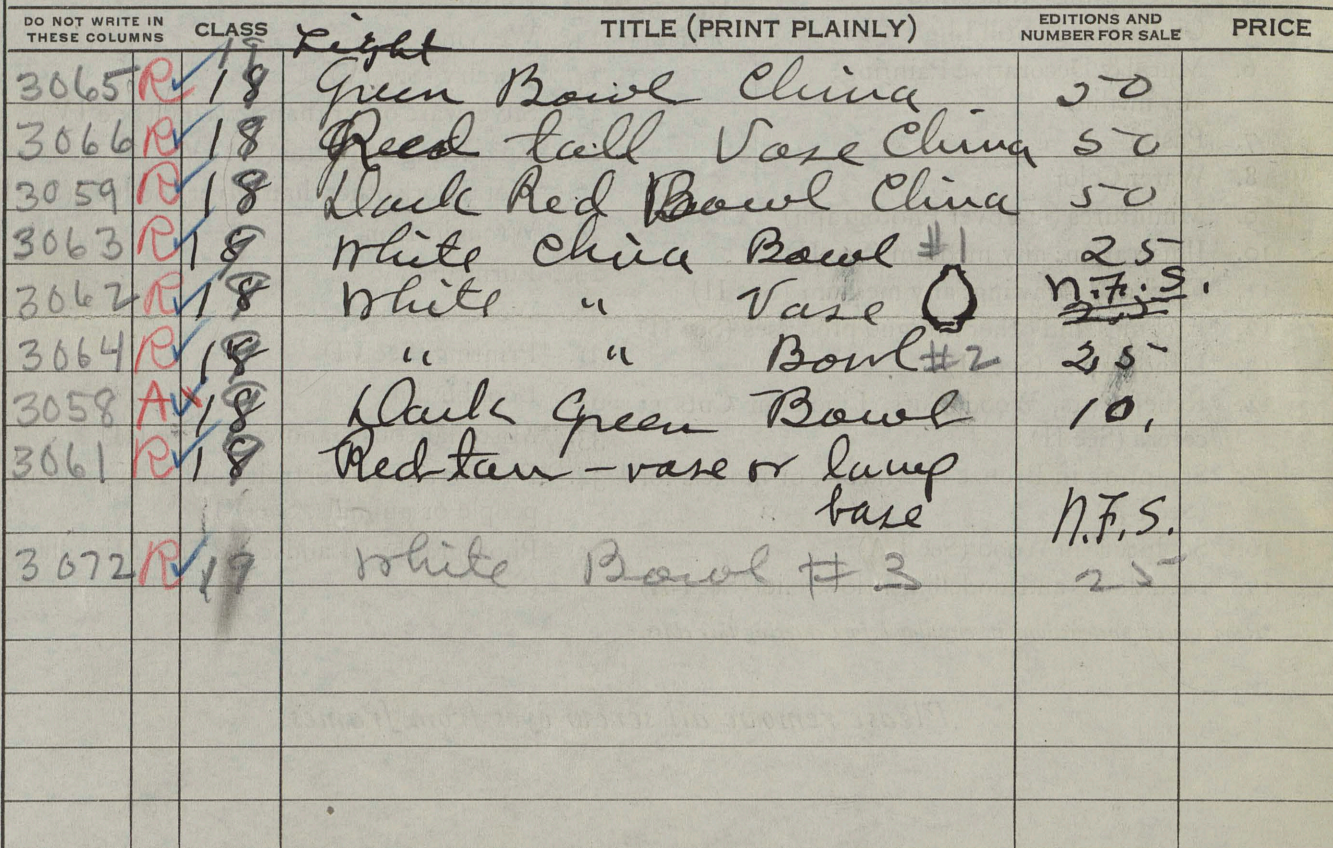 DO NOT WRITE IN THESE COLUMNS CLASS TITLE (PRINT PLAINLY) EDITIONS AND NUMBER FOR SALE PRICE
Light
3065 R 18 Green Bowl China 50
3066 R 18 Reed tall Vase China 50
3059 R 18 Dark Red Bowl China 50
3063 R 18 White China Bowl #1 25
3062 R 18 White " Vase N.F.S.
3064 R 18 " " Bowl #2 25
3058 A x 18 Dark Green Bowl 10.
3061 R 18 Red-tan – vase or lamp
base N.F.S.
3072 R 19 White Bowl #3 25
Please remove all screw eyes from frames